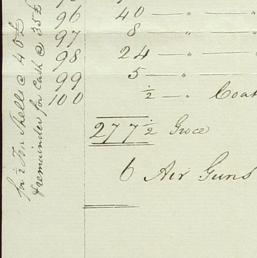 96 40 — " — "
97 8 — " — "
98 24 — " — "
99 5 — " — "
100 ½ — " Coat
277 ½ Groce
6 Air Guns
for 2 Tin Shells @ 40£
remainder for Cash @ 35£